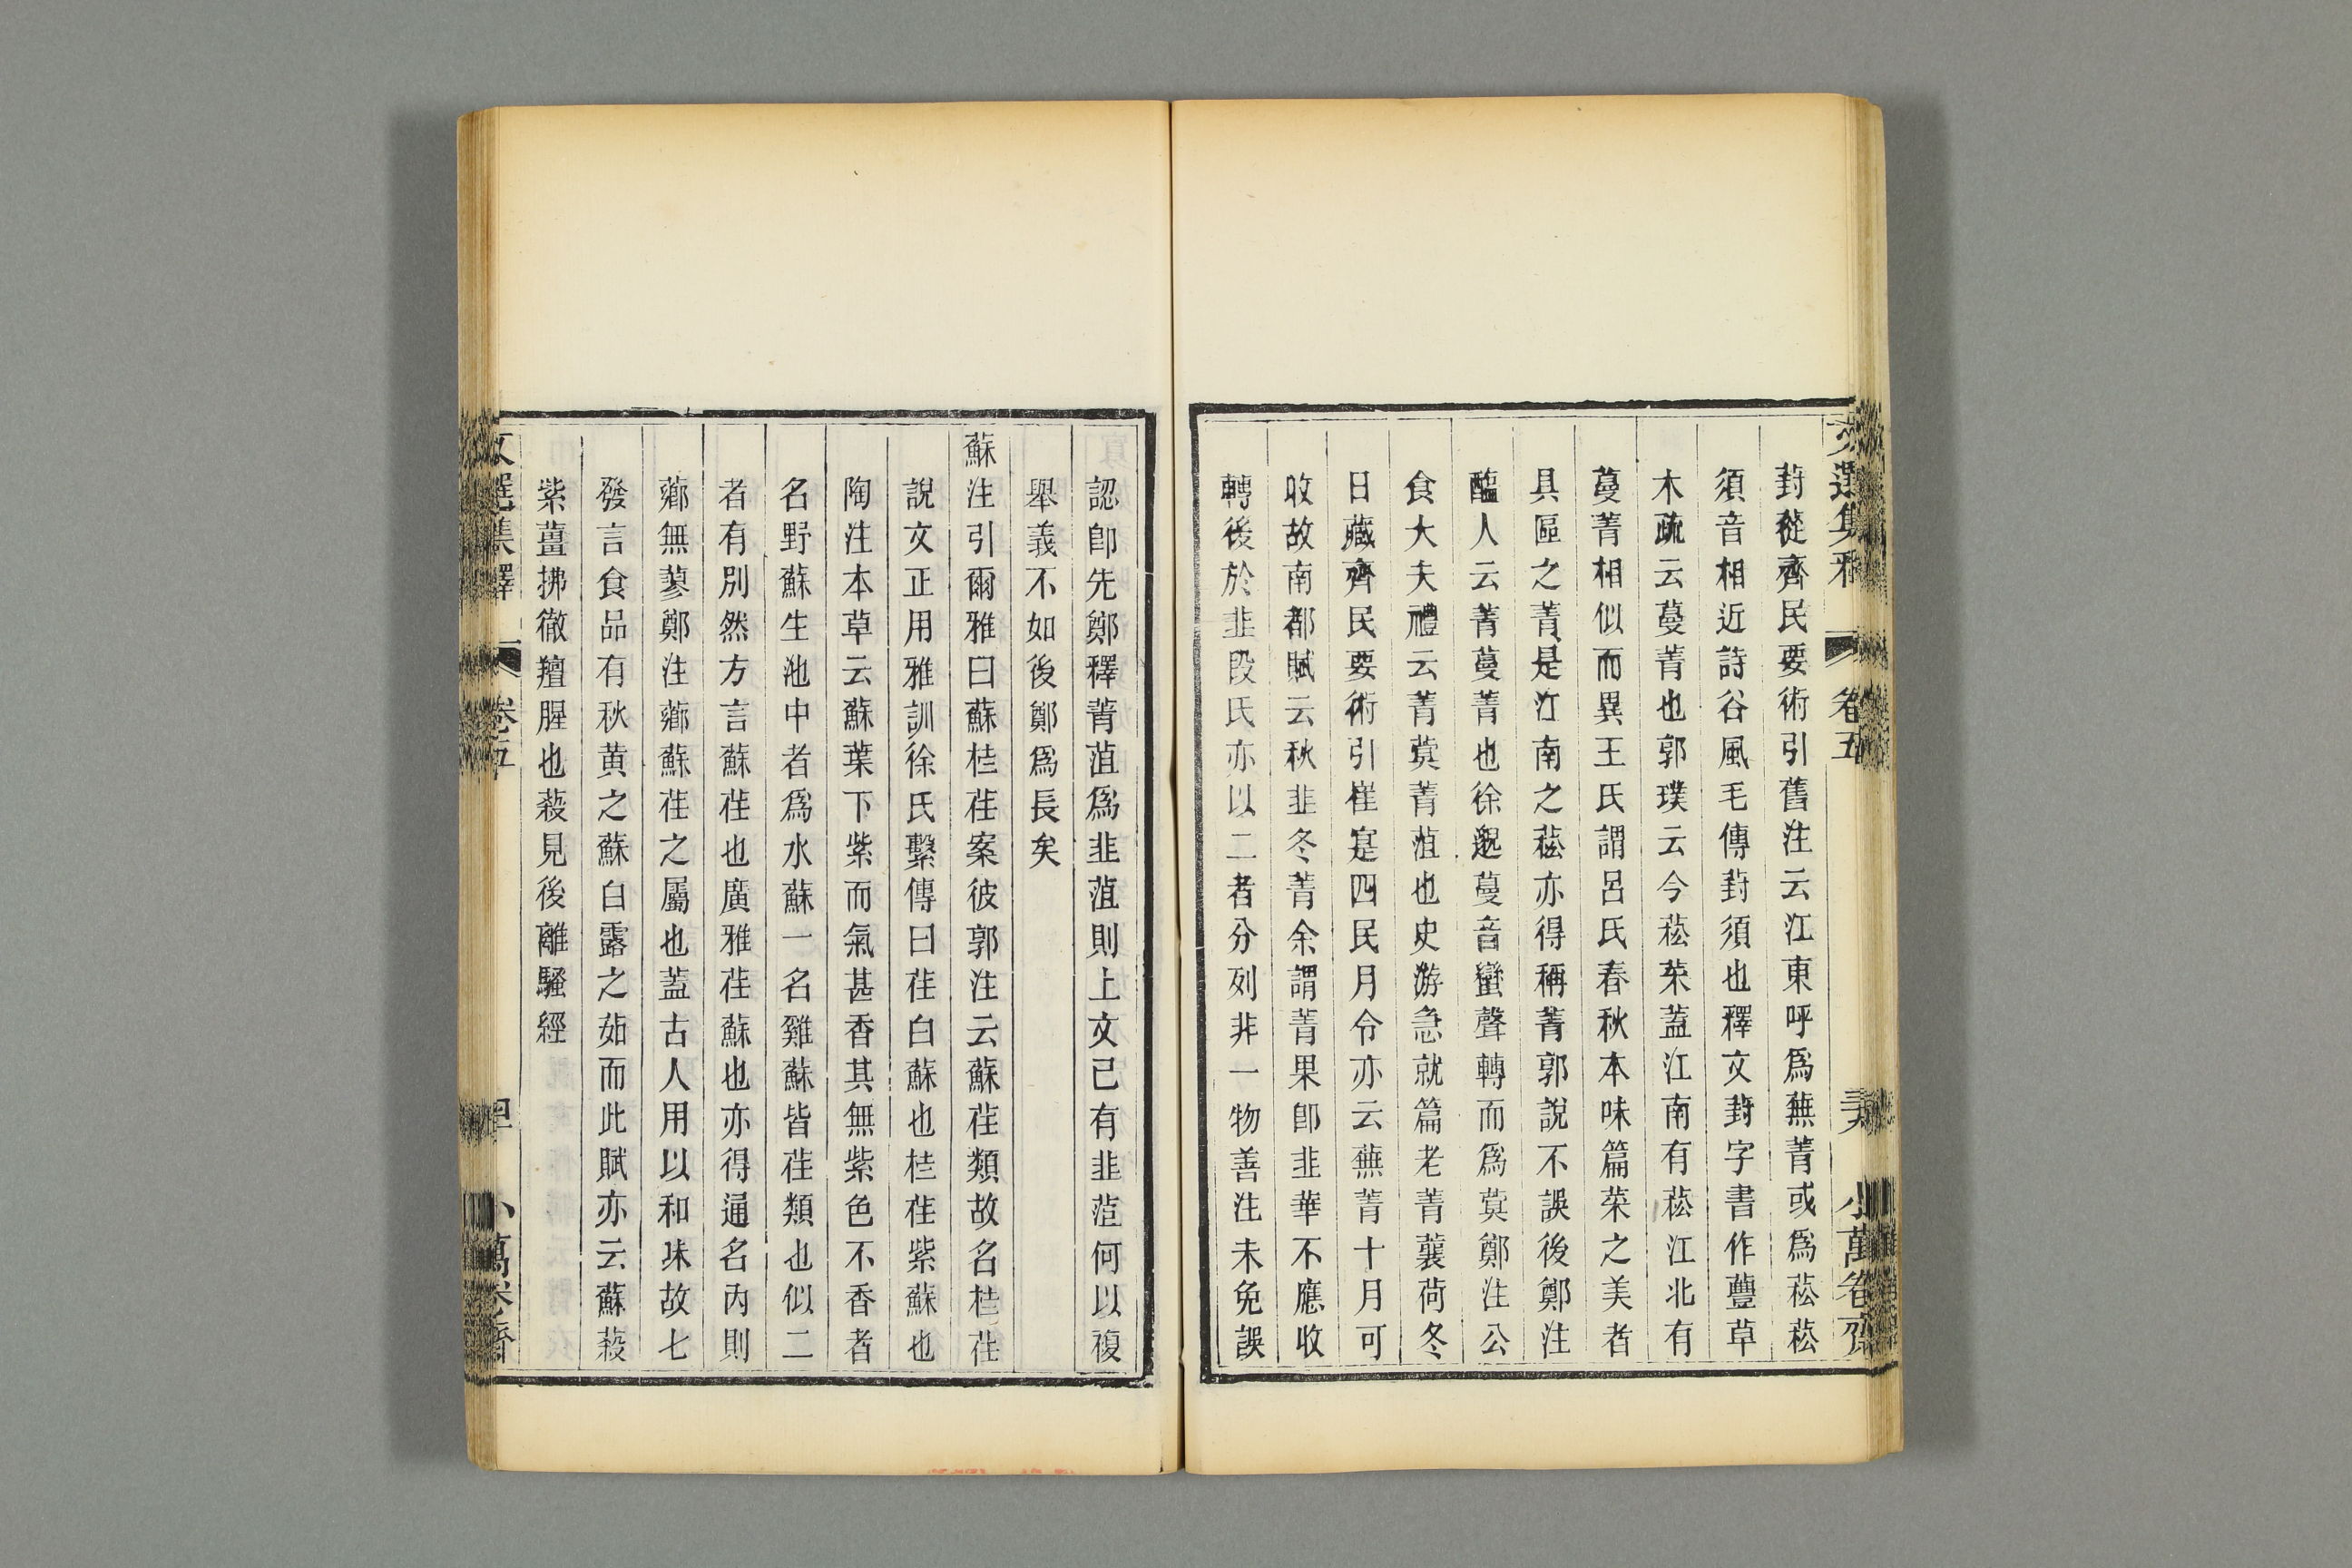 葑蓯齊民要術引舊注云江東呼爲蕪菁或爲菘菘
須音相近詩谷風毛傳葑須也釋文葑字書作蘴草
木疏云蔓菁也郭璞云今菘菜葢江南有菘江北有
蔓菁相似而異王氏謂呂氏春秋本味篇菜之美者
具區之菁是江南之菘亦得稱菁郭說不誤後鄭注
醢人云菁蔓菁也徐邈蔓音蠻聲轉而爲蓂鄭注公
食大夫禮云菁蓂菁菹也史游急就篇老菁蘘荷冬
日藏齊民要術引崔寔四民月令亦云蕪菁十月可
收故南都賦云秋韭冬菁余謂菁果卽韭華不應收
轉後於韭段氏亦以二者分列非一物善注未免誤
認卽先鄭釋菁菹爲韭菹則上文已有韭菹何以複
舉義不如後鄭爲長矣
蘇注引爾雅曰蘇桂荏案彼郭注云蘇荏類故名桂荏
說文正用雅訓徐氏繫傳曰荏白蘇也桂荏紫蘇也
陶注本草云蘇葉下紫而氣甚香其無紫色不香者
名野蘇生池中者爲水蘇一名雞蘇皆荏類也似二
者有別然方言蘇荏也廣雅荏蘇也亦得通名內則
薌無蓼鄭注薌蘇荏之屬也葢古人用以和味故七
發言食品有秋黄之蘇白露之茹而此賦亦云蘇蔱
紫薑拂徹羶腥也蔱見後離騷經
文選集釋 卷五 小萬卷齋